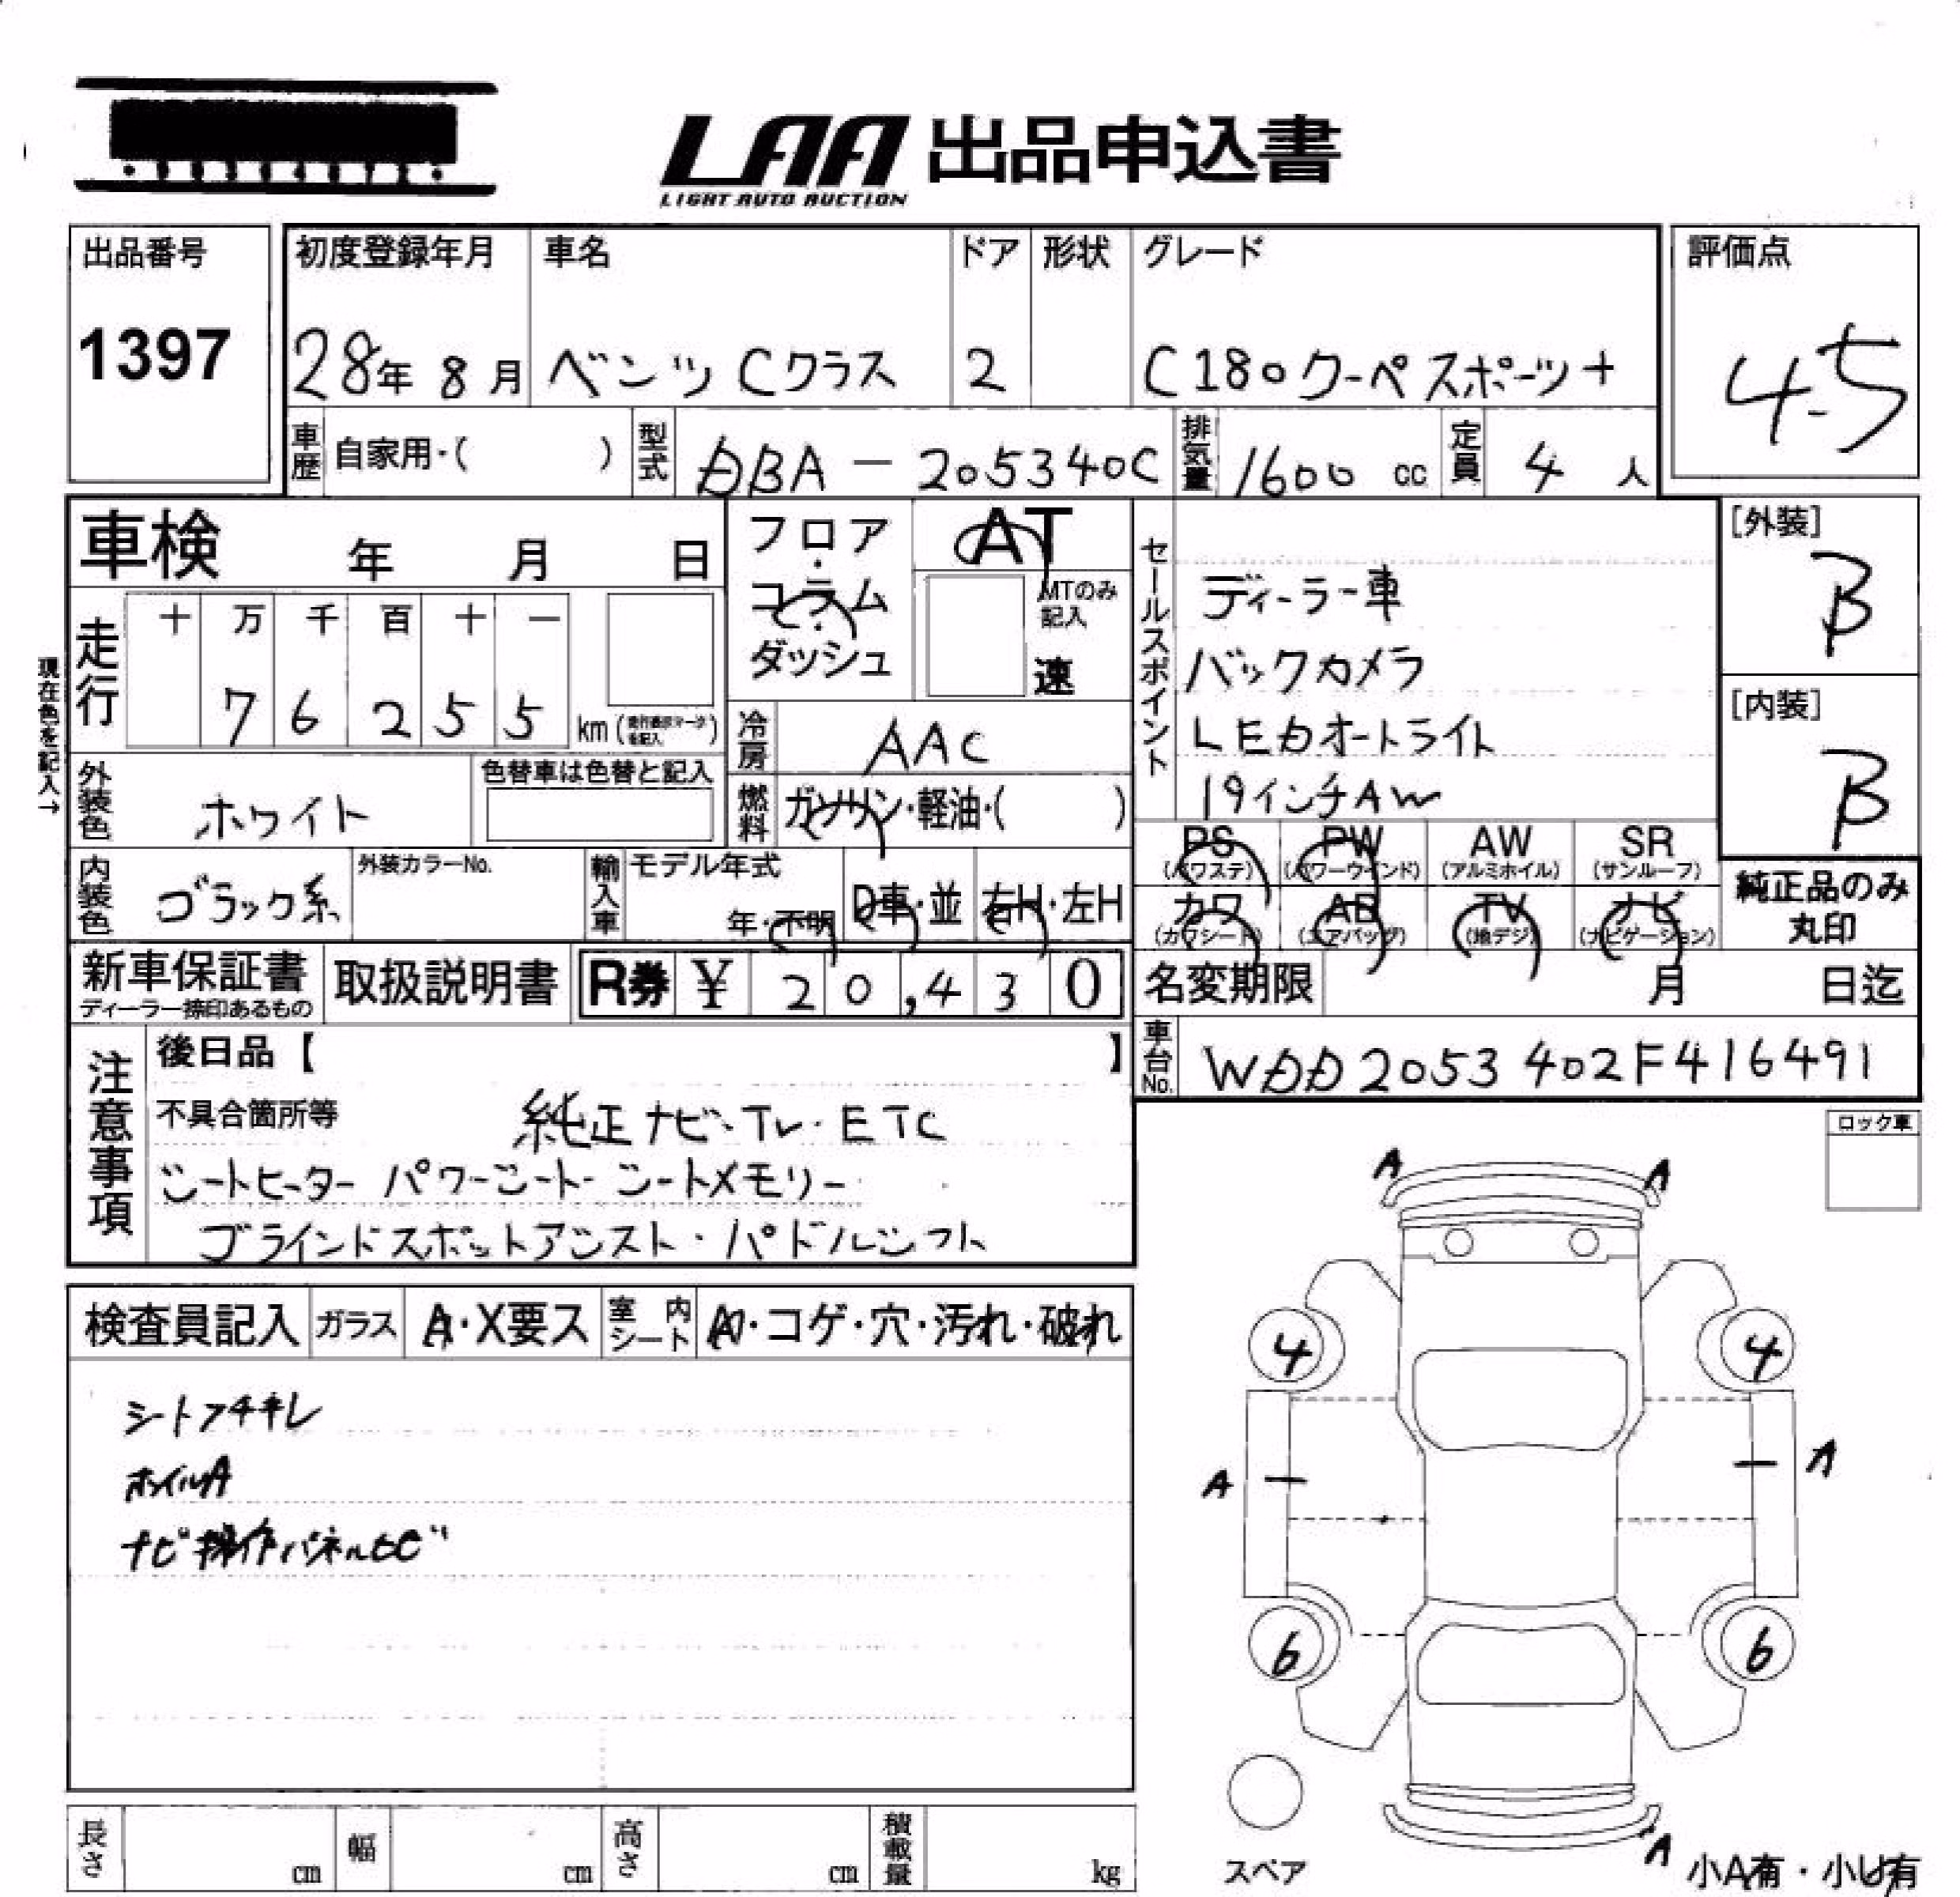 LAA 出品申込書
LIGHT AUTO AUCTION
出品番号 初度登録年月 車名 ドア 形状 グレード 評価点
1397 28年 8月 ベンツ Cクラス 2 C180クーペ スポーツ+ 4.5
車歴 自家用・( ) 型式 DBA-205340C 排気量 1600 cc 定員 4 人
車検 年 月 日 フロア・コラム・ダッシュ AT
MTのみ記入 速
現在色を記入→
走行 十 万 千 百 十 一
7 6 2 5 5 km
外装色 ホワイト 色替車は色替と記入
冷房 AAC
燃料 ガソリン・軽油・( )
セールスポイント
ディーラー車
バックカメラ
LEDオートライト
19インチAW
[外装]
B
[内装]
B
内装色 ブラック系 外装カラーNo. 輸入車 モデル年式 年・不明 D車・並 右H・左H
PS (パワステ) PW (パワーウインド) AW (アルミホイル) SR (サンルーフ)
カワ (カワシート) AB (エアバッグ) TV (地デジ) ナビ (ナビゲーション)
純正品のみ
丸印
新車保証書 取扱説明書 R券 ¥ 20,430
ディーラー捺印あるもの
名変期限 月 日迄
車台No. WDD2053402F416491
注意事項
後日品【 】
不具合箇所等 純正ナビ・TV・ETC
シートヒーター パワーシート シートメモリー
ブラインドスポットアシスト・パドルシフト
ロック車
検査員記入 ガラス A・X要ス 室内シート A・コゲ・穴・汚れ・破れ
シートフチキレ
ホイルA
ナビ操作パネルヒビ
A A
4 4
A A
6 6
A
スペア
小A有・小U有
長さ cm 幅 cm 高さ cm 積載量 kg